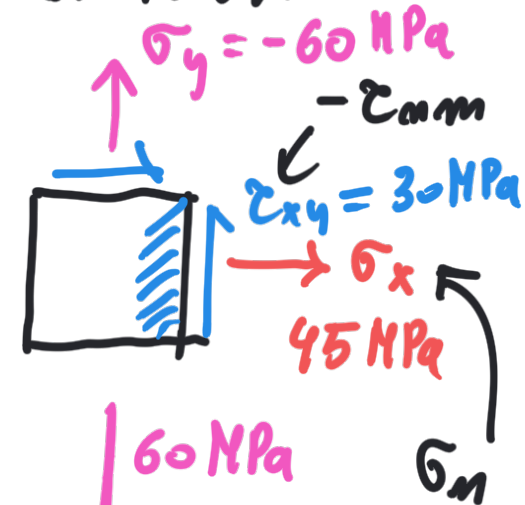 σy = -60 MPa
-τnm
τxy = 30 MPa
σx
45 MPa
60 MPa
σn